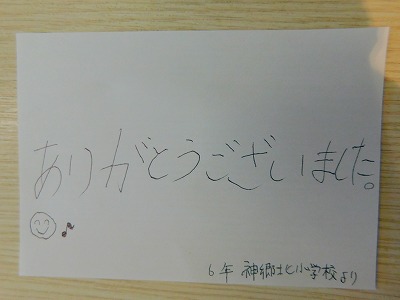 ありがとうございました。
6年 神郷北小学校より